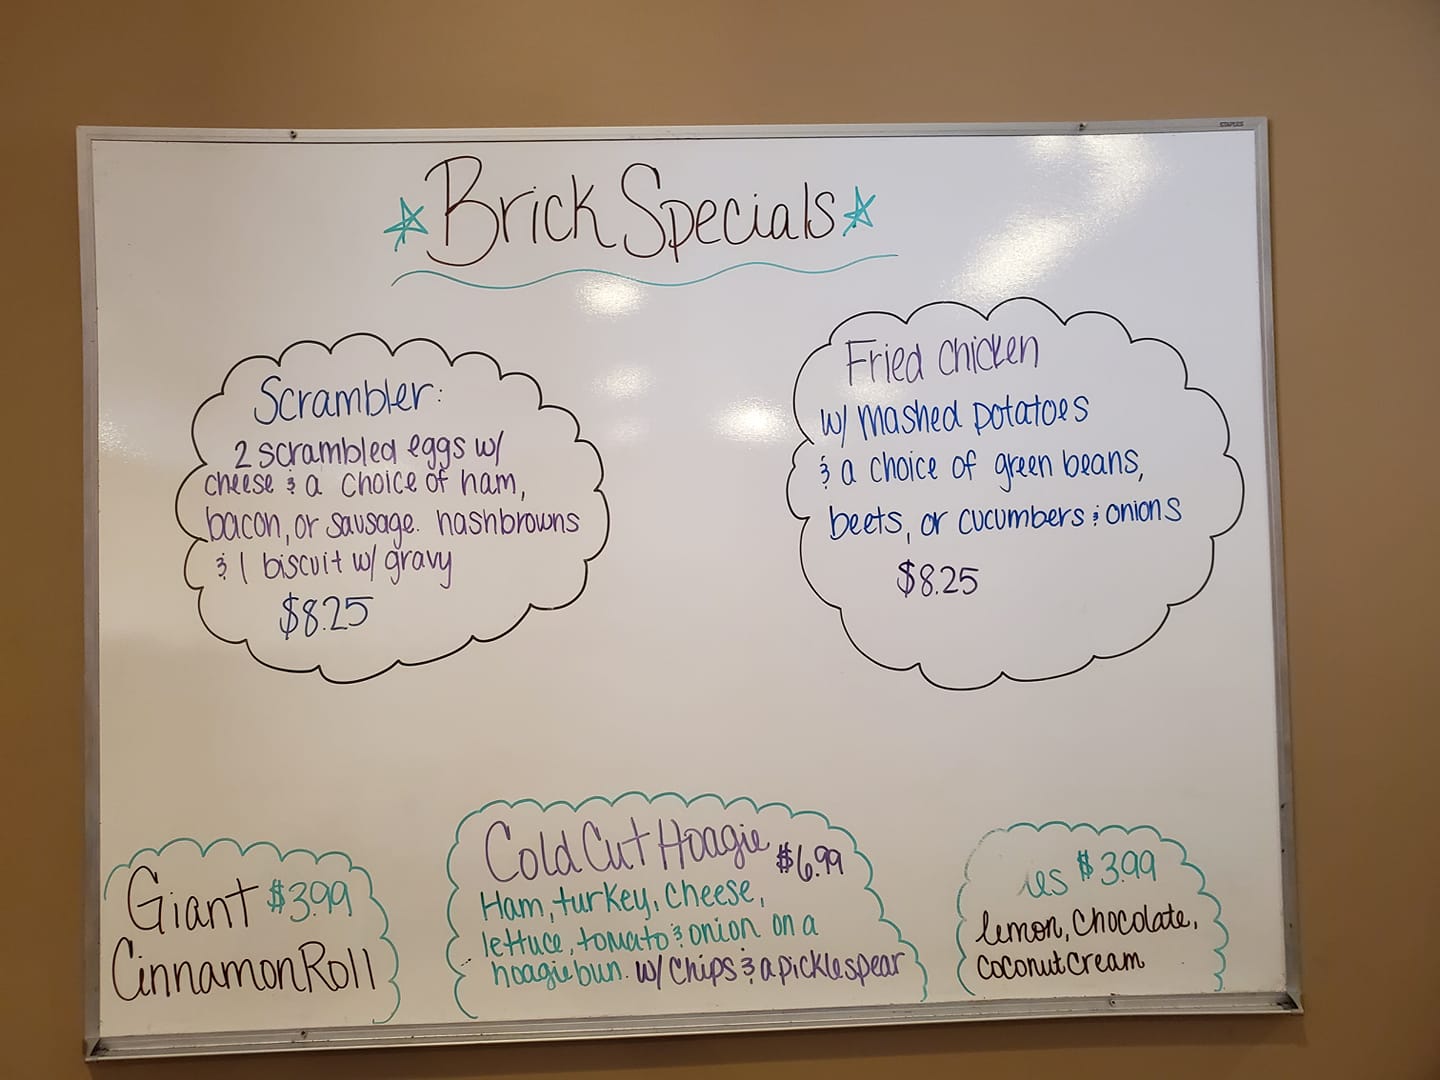 Brick Specials
Scrambler:
2 scrambled eggs w/
cheese & a choice of ham,
bacon, or sausage. hashbrowns
& 1 biscuit w/ gravy
$8.25
Fried chicken
w/ mashed potatoes
& a choice of green beans,
beets, or cucumbers & onions
$8.25
Giant $3.99
Cinnamon Roll
Cold Cut Hoagie $6.99
Ham, turkey, cheese,
lettuce, tomato & onion on a
hoagie bun. w/ chips & a pickle spear
$3.99
lemon, chocolate,
coconut cream
STAPLES